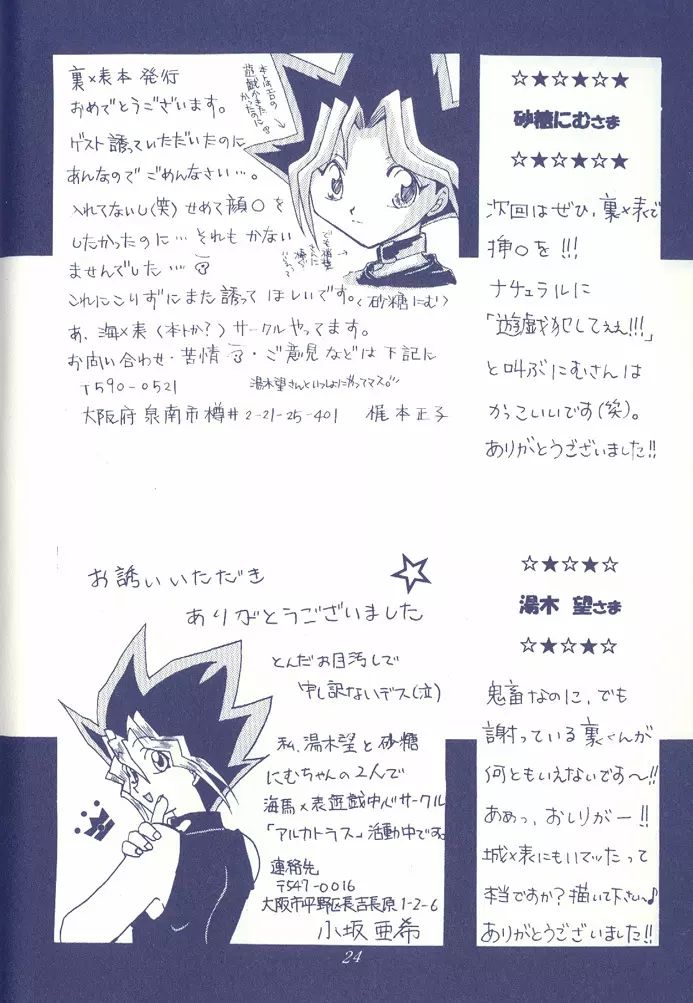 裏×表本 発行
おめでとうございます。
ゲスト誘っていただいたのに
あんなのでごめんなさい…。
入れてないし(笑)せめて顔○を
したかったのに… それもかない
ませんでした…
これにこりずにまた誘ってほしいです。(砂糖にむ)
あ、海×表(本トか?)サークルやってます。
お問い合わせ・苦情・ご意見などは下記に
〒590-0521
湯木望さんといっしょにやってマス。
大阪府泉南市樽井2-21-25-401 梶本正子
本トはエロの
遊戯がかきた
かったのに
☆★☆★☆★
砂糖にむさま
☆★☆★☆★
次回はぜひ、裏×表で
挿○を!!!
ナチュラルに
「遊戯犯してぇえ!!!」
と叫ぶにむさんは
かっこいいです(笑)。
ありがとうございました!!
お誘いいただき
ありがとうございました
とんだお目汚しで
申し訳ないデス(泣)
私、湯木望と砂糖
にむちゃんの2人で
海馬×表遊戯中心サークル
「アルカトラス」活動中です。
連絡先
〒547-0016
大阪市平野区長吉長原1-2-6
小坂亜希
☆★☆★☆
湯木 望さま
☆★☆★☆
鬼畜なのに、でも
謝っている裏くんが
何ともいえないです〜!!
ああっ、おしりがー!!
城×表にもいてッたって
本当ですか?描いて下さい〜♪
ありがとうございました!!
24